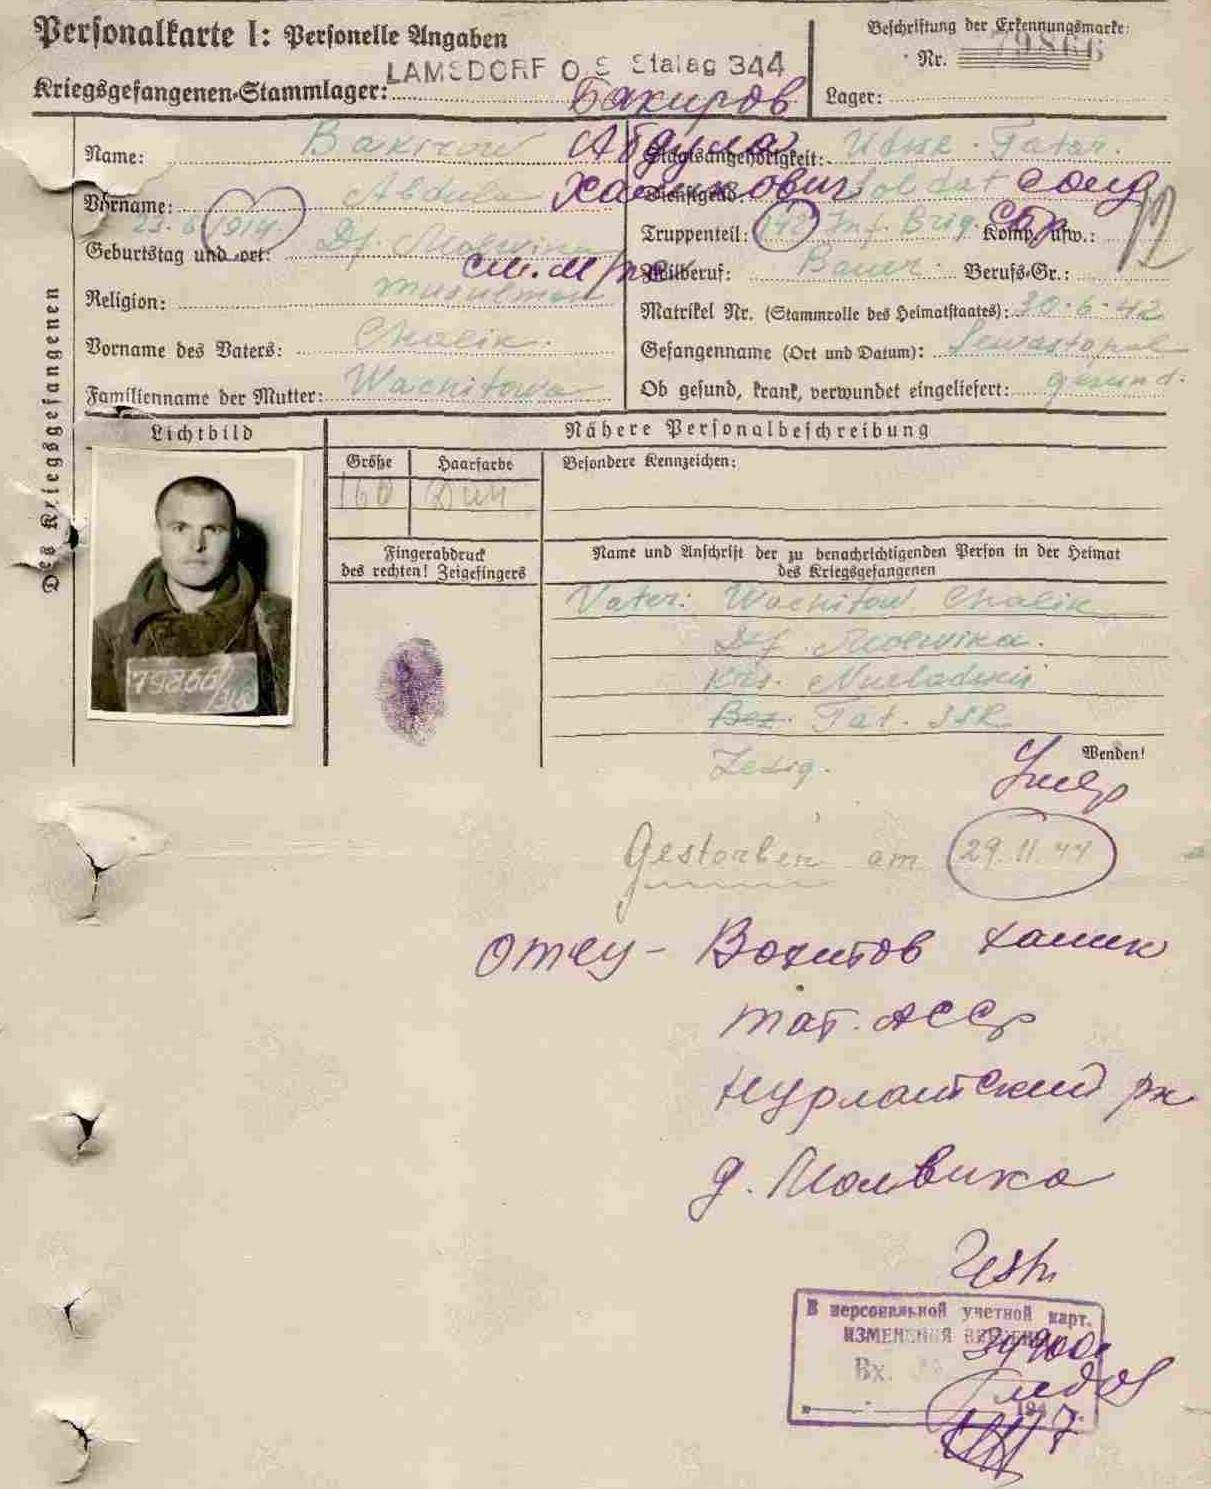 Personalkarte I: Personelle Angaben
Beschriftung der Erkennungsmarke:
Nr. 79866
LAMSDORF O.S Stalag 344
Kriegsgefangenen-Stammlager:
Lager:
Бакиров
Name: Bakirow
Абдула
Staatsangehörigkeit: Tatar.
Vorname: Abdula
Халикович
Dienstgrad: Soldat
Солд
Geburtstag und -ort: 23.6.1914 Df.
Truppenteil: 142 Inf. Brig. Komp. usw.:
Zivilberuf: Bauer. Berufs-Gr.:
Religion: Musulman
Matrikel Nr. (Stammrolle des Heimatstaates): 30.6.42
Vorname des Vaters: Chalik.
Gefangenname (Ort und Datum): Sewastopol
Familienname der Mutter: Wachitowa
Ob gesund, krank, verwundet eingeliefert: gesund.
Des Kriegsgefangenen
Lichtbild
Nähere Personalbeschreibung
Größe
Haarfarbe
Besondere Kennzeichen:
160
Fingerabdruck
des rechten! Zeigefingers
Name und Anschrift der zu benachrichtigenden Person in der Heimat
des Kriegsgefangenen
Vater: Wachitow Chalik
Df. Molwika.
Krs.
Bez. Tat. SSR
79866
Ledig.
Wenden!
Умер
Gestorben am 29.11.44
отец - Вахитов Халик
Тат. АССР
Нурлатский рн
д. Молвика
В персональной учетной карт.
ИЗМЕНЕНИЯ ВНЕСЕНЫ
Вх.
194 7.